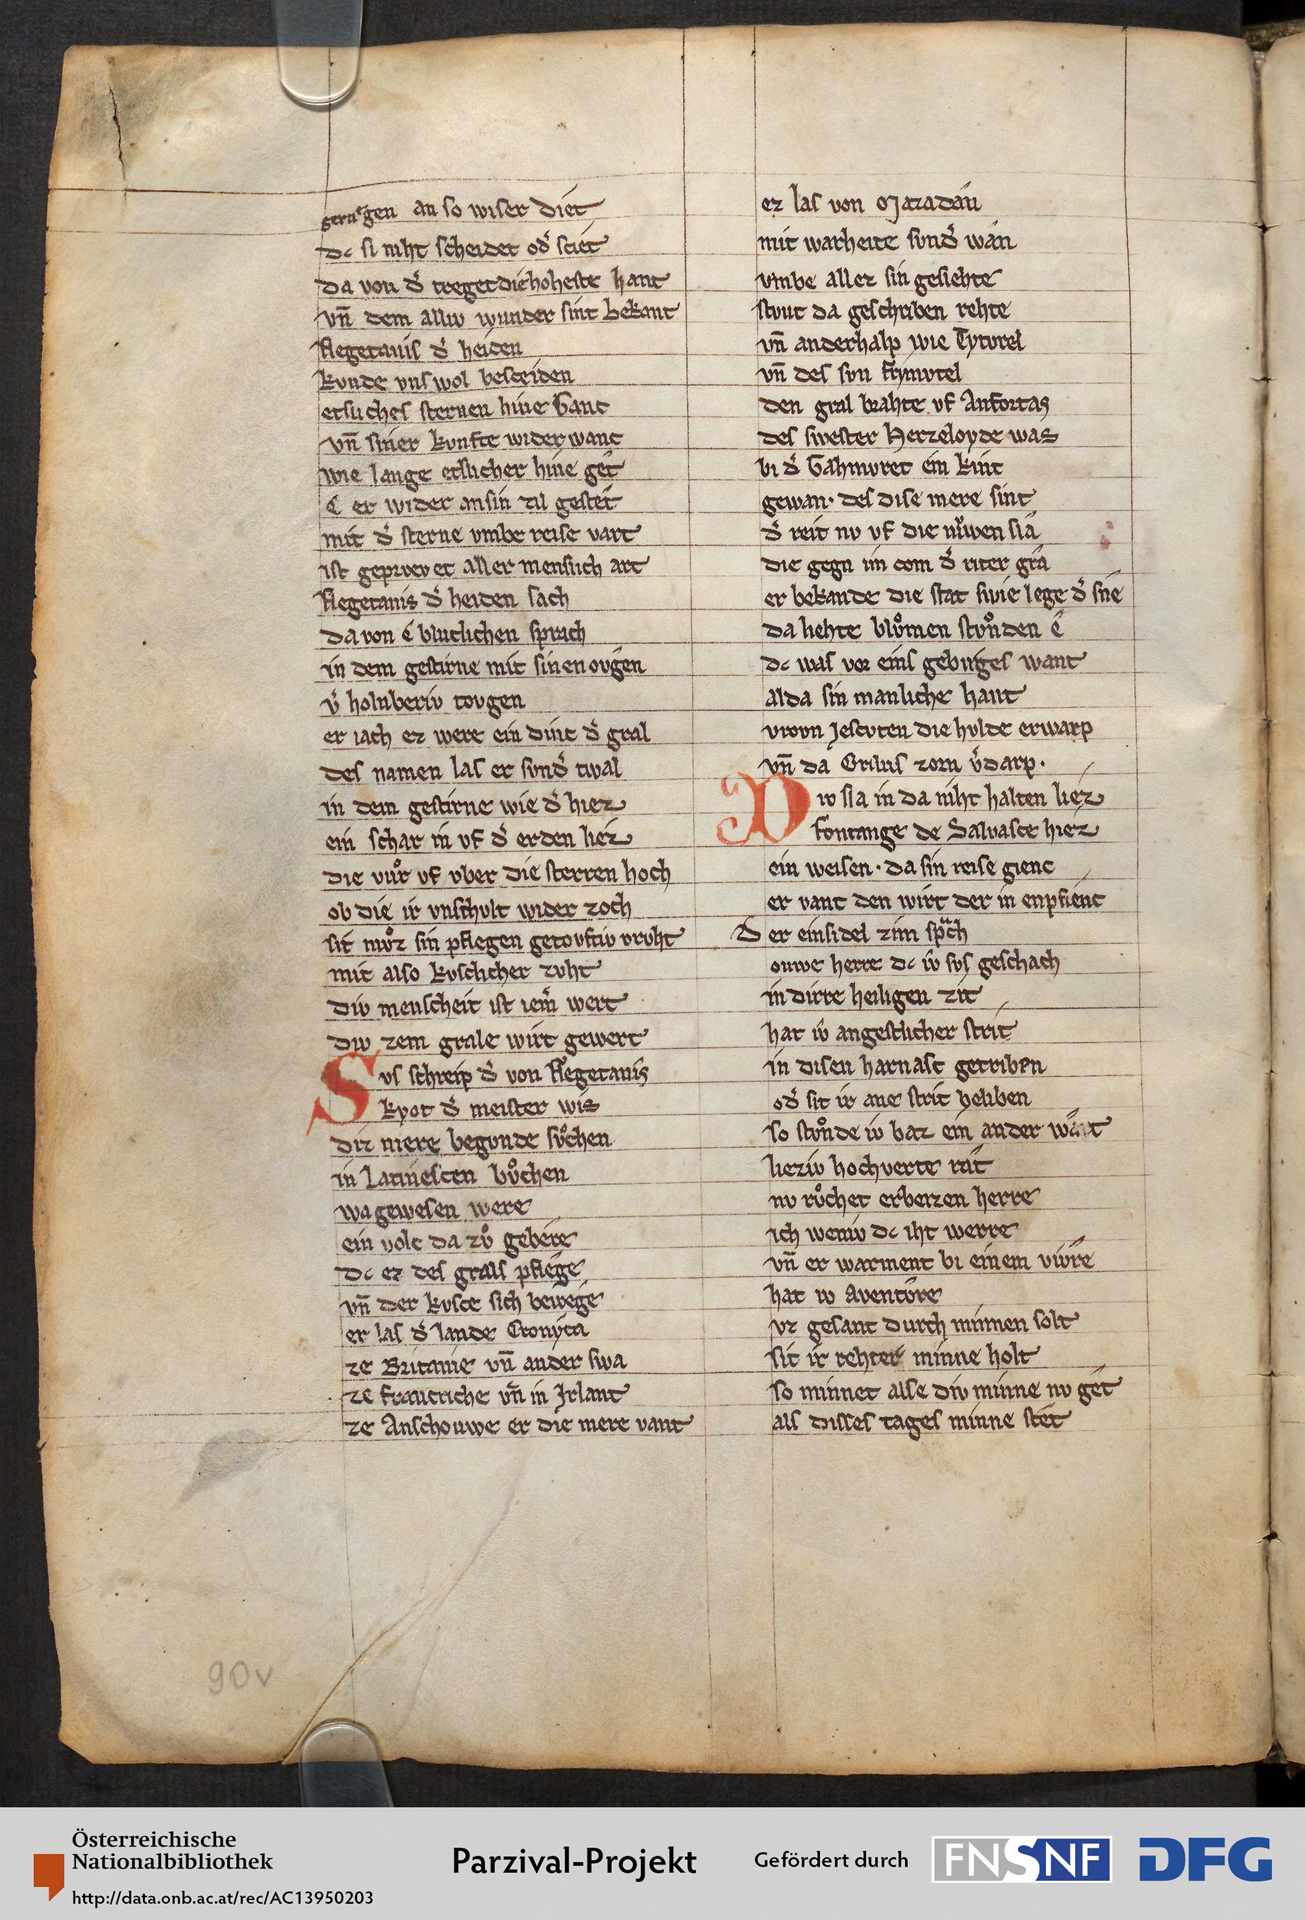 genvͦgen an so wiser diet
dc si niht scheidet od̄ sciet
da von d̄ treget die hoheste hant
vn̄ dem alliv wunder sint bekant
Flegetanis d̄ heiden
kvnde vns wol besceiden
etsliches sternen hine Ganc
vn̄ siner kvnfte wider wanc
wie lange etslicher hine get
E er wider an sin zil gestet
mit d̄ sterne vmbe reise vart
ist geprvevet aller menslich art
Flegetanis d̄ heiden sach
da von E blvclichen sprach
in dem gestirne mit sinen ovgen
v̄holnberiv tovgen
er iach ez were ein dinc d̄ gral
des namen las er svnd̄ twal
in dem gestirne wie d̄ hiez
ein schar in vf d̄ erden liez
die vuͦr vf vber die sterren hoch
ob die ir vnschvlt wider zoch
sit mvͦz sin pflegen getovftiv vrvht
mit also kvslicher zvht
div menscheit ist iem̄ wert
div zem grale wirt gewert
Svs schreip d̄ von Flegetanis
kyot d̄ meister wis
diz mere begonde svͦchen
in Latinescen bvͦchen
wa gewesen were
ein volc da zvͦ gebere
dc ez des grals pflege
vn̄ der kvsce sich bewege
er las d̄ lande Cronyca
ze Britanie vn̄ ander swa
ze francriche vn̄ in Jrlant
ze Anschouwe er die mere vant
er las von Mazadan
mit warheite svnd̄ wan
vmbe allez sin geslehte
stvnt da geschriben rehte
vn̄ anderhalp wie Tyturel
vn̄ des svn frymvtel
den gral brahte vf Anfortas
des swester Herzeloyde was
bi d̄ Gahmvret ein kint
gewan· des dise mere sint
d̄ reit nv vf die nvͦwen sla
die gegn im com d̄ riter gra
er bekande die stat swie lege d̄ sne
da liehte blvͦmen stvͦnden e
dc was vor eins gebirges want
alda sin manliche hant
vrovn Jescvten die hvlde erwarp
vn̄ da Orilus zorn v̄darp·
Div sla in da niht halten liez
fontange de Salvasce hiez
ein weisen· da sin reise gienc
er vant den wirt der in enpfienc
Der einsidel zim sprach
ouwe herre dc iv svs geschach
in dirre heiligen zit
hat iv angestlicher strit
in disen harnasc getriben
od̄ sit ir ane strit beliben
so stvͦnde iv baz ein ander wat
liez iv hochverte rat
nv rvͦchet erbeizen herre
ich wen iv dc iht werre
vn̄ er warment bi einem vivre
hat iv aventivre
vz gesant durch minnen solt
sit ir rehter minne holt
so minnet alse div minne nv get
als disses tages minne stet
90v
Österreichische
Nationalbibliothek
http://data.onb.ac.at/rec/AC13950203
Parzival-Projekt
Gefördert durch
FNSNF
DFG